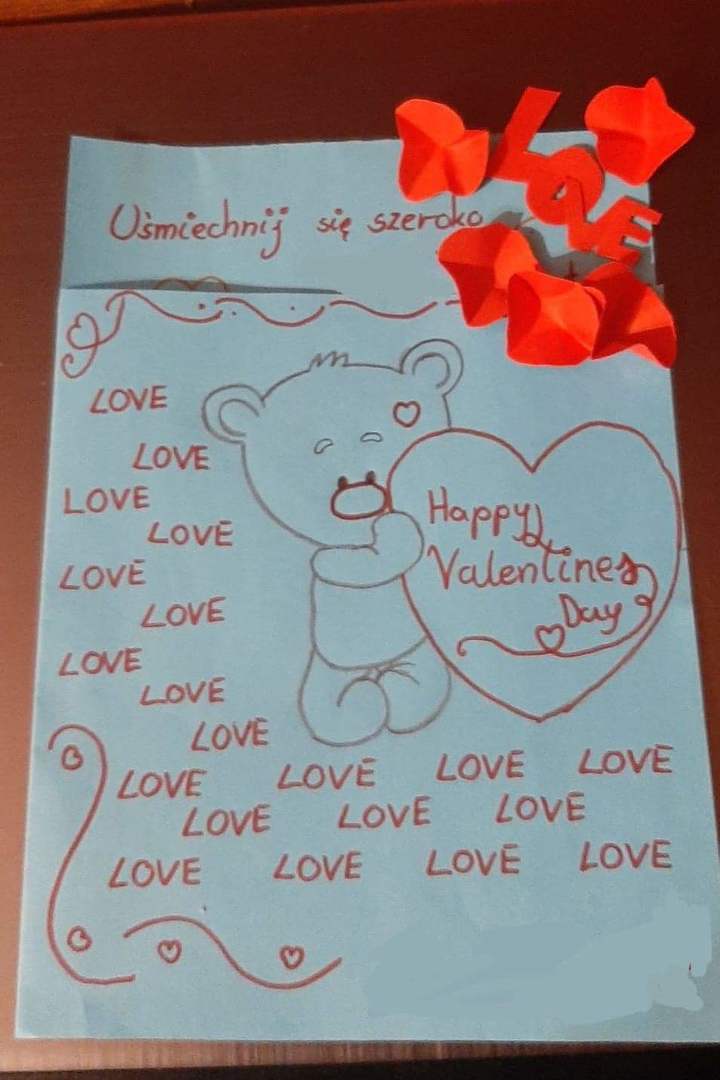 LOVE
Uśmiechnij się szeroko
LOVE
LOVE
LOVE
LOVE
LOVE
LOVE
LOVE
LOVE
LOVE
Happy
Valentines
Day
LOVE LOVE LOVE LOVE
LOVE LOVE LOVE
LOVE LOVE LOVE LOVE